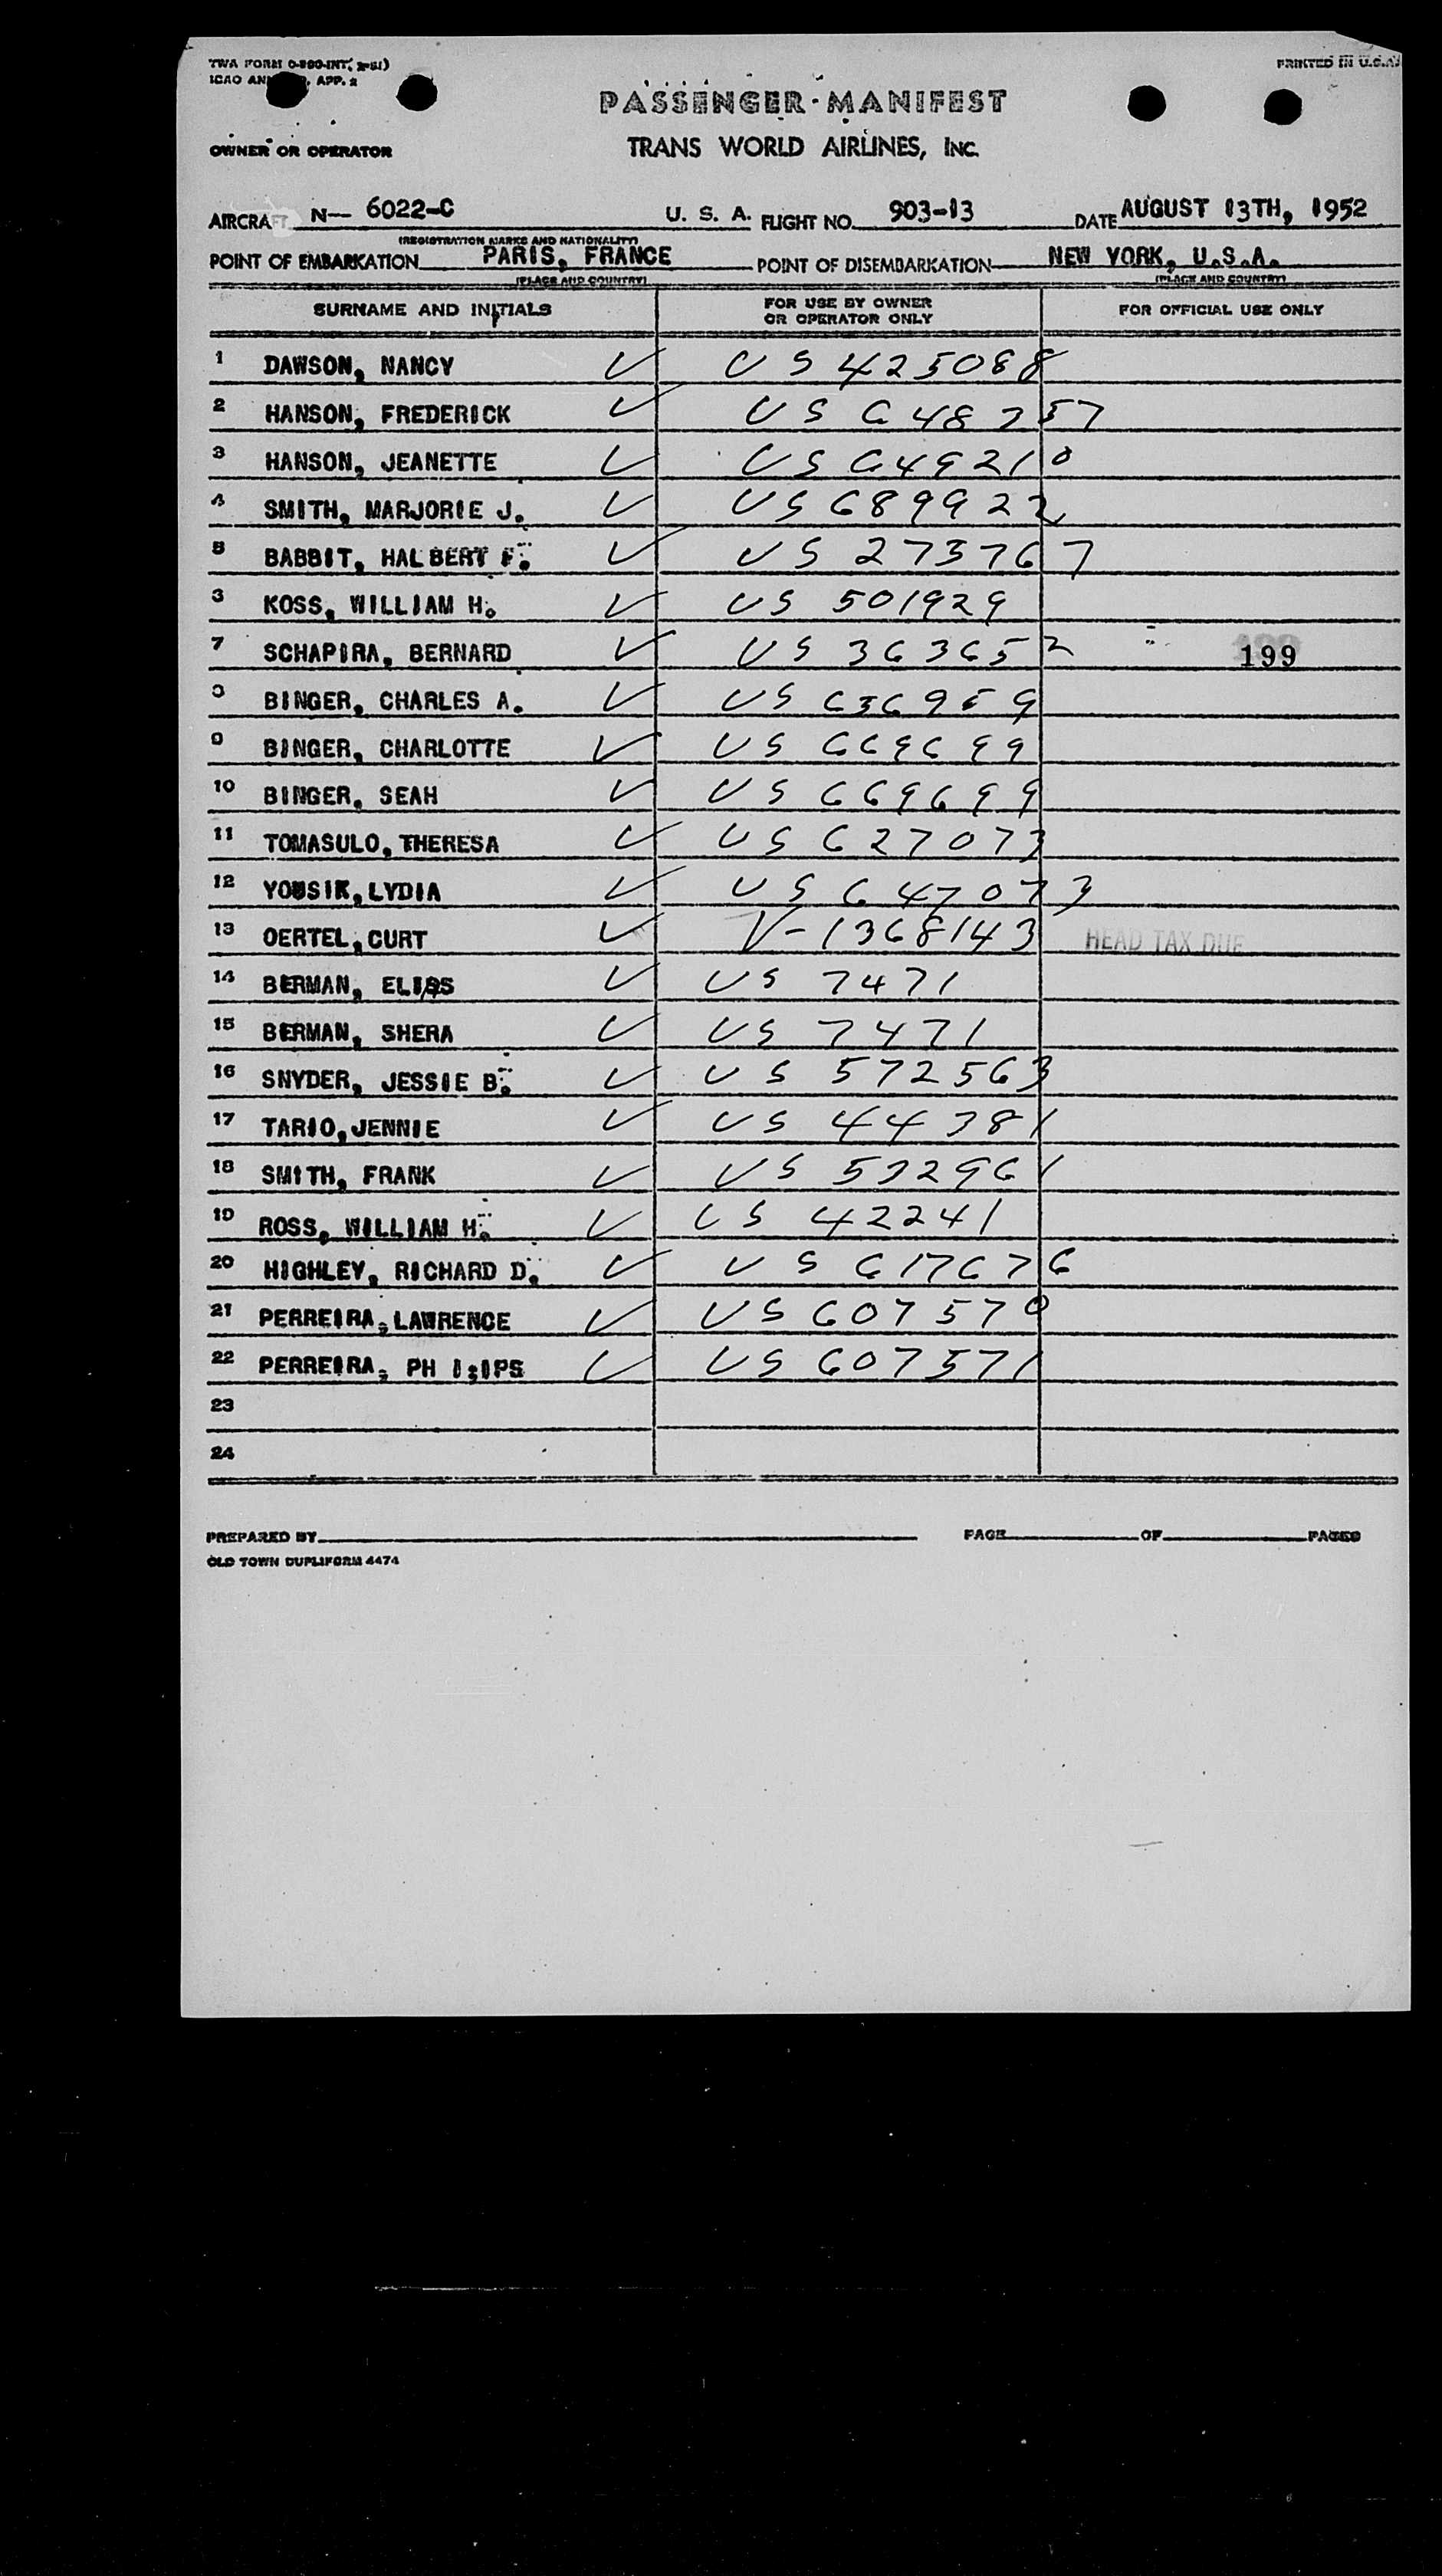 TWA FORM O-890-INT, 2-51)
ICAO ANN. APP. 2
PRINTED IN U.S.A.
PASSENGER-MANIFEST
OWNER OR OPERATOR
TRANS WORLD AIRLINES, INC.
AIRCRAFT N— 6022-C U. S. A. FLIGHT NO. 903-13 DATE AUGUST 13TH, 1952
(REGISTRATION MARKS AND NATIONALITY)
POINT OF EMBARKATION PARIS, FRANCE POINT OF DISEMBARKATION NEW YORK, U.S.A.
(PLACE AND COUNTRY) (PLACE AND COUNTRY)
SURNAME AND INITIALS FOR USE BY OWNER OR OPERATOR ONLY FOR OFFICIAL USE ONLY
1 DAWSON, NANCY ✓ US 425088
2 HANSON, FREDERICK ✓ US 648757
3 HANSON, JEANETTE ✓ US 649210
4 SMITH, MARJORIE J. ✓ US 689922
5 BABBIT, HALBERT F. ✓ US 273767
6 KOSS, WILLIAM H. ✓ US 501929
7 SCHAPIRA, BERNARD ✓ US 363652 199
8 BINGER, CHARLES A. ✓ US 636959
9 BINGER, CHARLOTTE ✓ US 669699
10 BINGER, SEAH ✓ US 669699
11 TOMASULO, THERESA ✓ US 627073
12 YOUSIK, LYDIA ✓ US 647073
13 OERTEL, CURT ✓ V-1368143 HEAD TAX DUE
14 BERMAN, ELIAS ✓ US 7471
15 BERMAN, SHERA ✓ US 7471
16 SNYDER, JESSIE B. ✓ US 572563
17 TARIO, JENNIE ✓ US 44381
18 SMITH, FRANK ✓ US 532961
19 ROSS, WILLIAM H. ✓ US 42241
20 HIGHLEY, RICHARD D. ✓ US 617676
21 PERREIRA, LAWRENCE ✓ US 607570
22 PERREIRA, PH I;IPS ✓ US 607571
23
24
PREPARED BY PAGE OF PAGES
OLD TOWN DUPLIFORM 4474